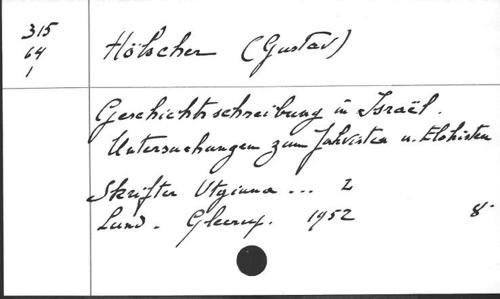 315
64
1
Hölscher (Gustav)
Geschichtschreibung in Israël.
Untersuchungen zum Jahvisten u. Elohisten
Skrifter Utgivna ... 2
Lund. Gleerup. 1952 8°